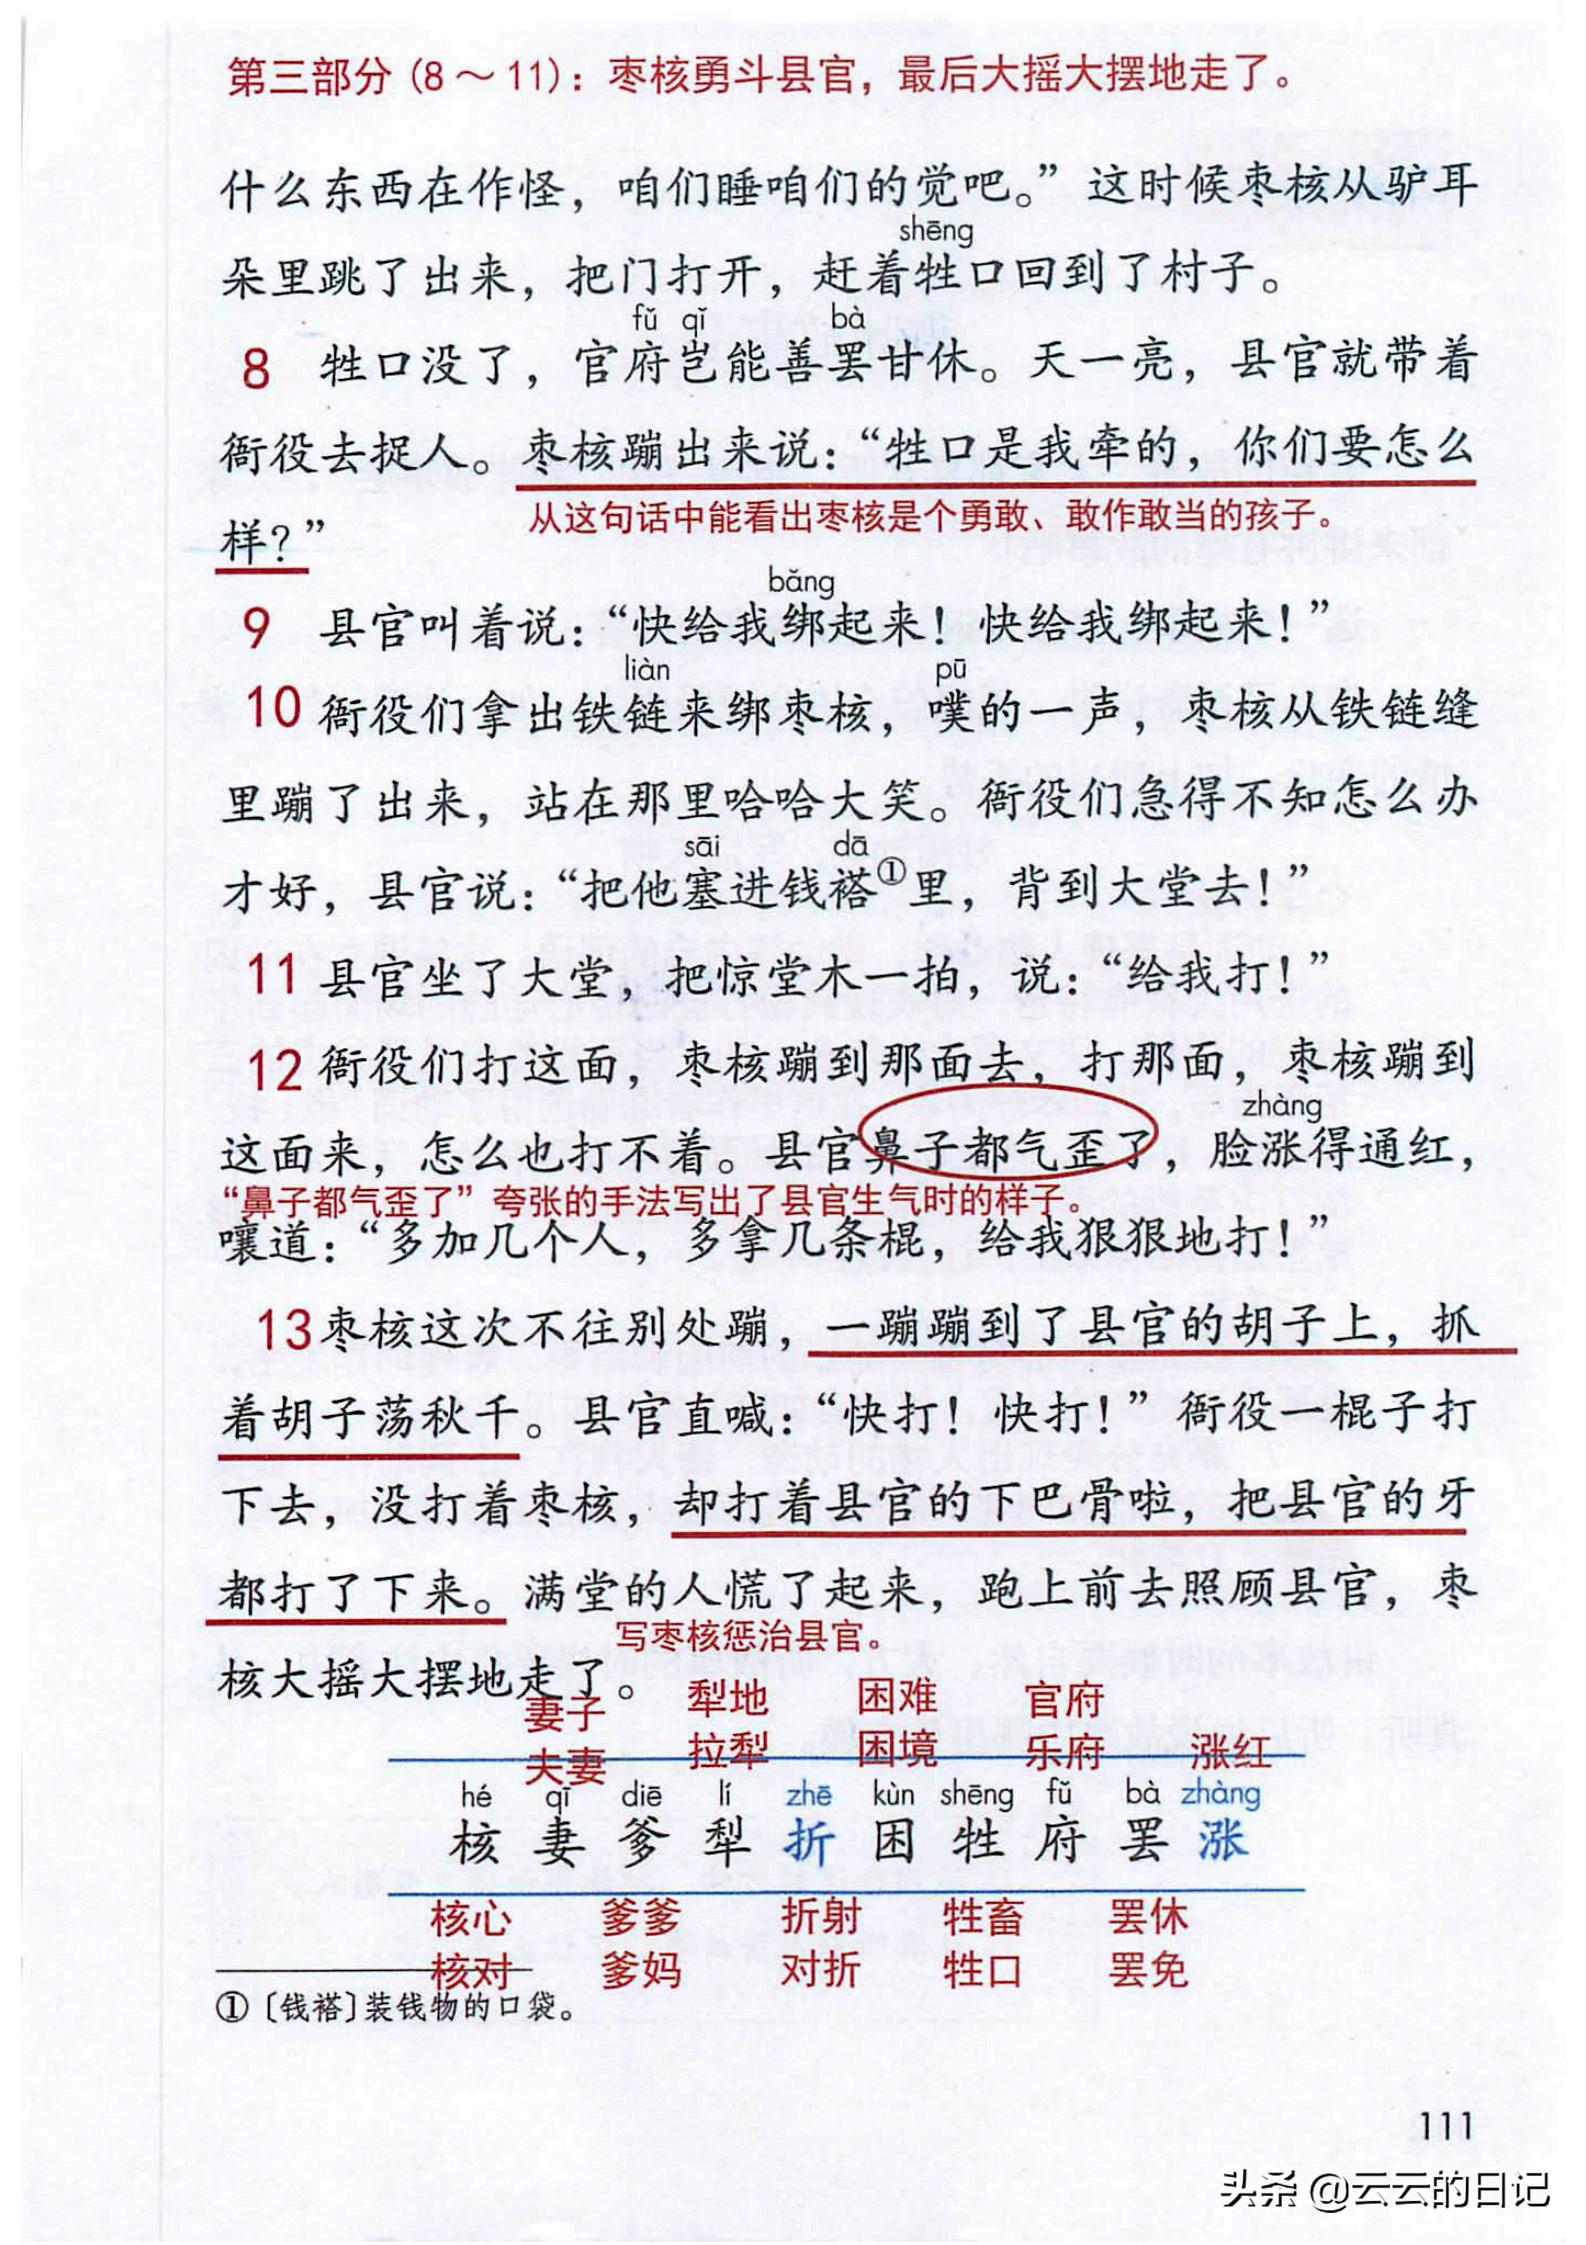 第三部分(8～11)：枣核勇斗县官，最后大摇大摆地走了。
什么东西在作怪，咱们睡咱们的觉吧。”这时候枣核从驴耳
shēng
朵里跳了出来，把门打开，赶着牲口回到了村子。
fǔ qǐ bà
8 牲口没了，官府岂能善罢甘休。天一亮，县官就带着
衙役去捉人。枣核蹦出来说：“牲口是我牵的，你们要怎么
从这句话中能看出枣核是个勇敢、敢作敢当的孩子。
样？”
bǎng
9 县官叫着说：“快给我绑起来！快给我绑起来！”
liàn pū
10 衙役们拿出铁链来绑枣核，噗的一声，枣核从铁链缝
里蹦了出来，站在那里哈哈大笑。衙役们急得不知怎么办
sāi dā
才好，县官说：“把他塞进钱褡①里，背到大堂去！”
11 县官坐了大堂，把惊堂木一拍，说：“给我打！”
12 衙役们打这面，枣核蹦到那面去，打那面，枣核蹦到
zhàng
这面来，怎么也打不着。县官鼻子都气歪了，脸涨得通红，
“鼻子都气歪了”夸张的手法写出了县官生气时的样子。
嚷道：“多加几个人，多拿几条棍，给我狠狠地打！”
13 枣核这次不往别处蹦，一蹦蹦到了县官的胡子上，抓
着胡子荡秋千。县官直喊：“快打！快打！”衙役一棍子打
下去，没打着枣核，却打着县官的下巴骨啦，把县官的牙
都打了下来。满堂的人慌了起来，跑上前去照顾县官，枣
写枣核惩治县官。
核大摇大摆地走了。
妻子 犁地 困难 官府
夫妻 拉犁 困境 乐府 涨红
hé qī diē lí zhē kùn shēng fǔ bà zhàng
核 妻 爹 犁 折 困 牲 府 罢 涨
核心 爹爹 折射 牲畜 罢休
核对 爹妈 对折 牲口 罢免
①〔钱褡〕装钱物的口袋。
111
头条 @云云的日记